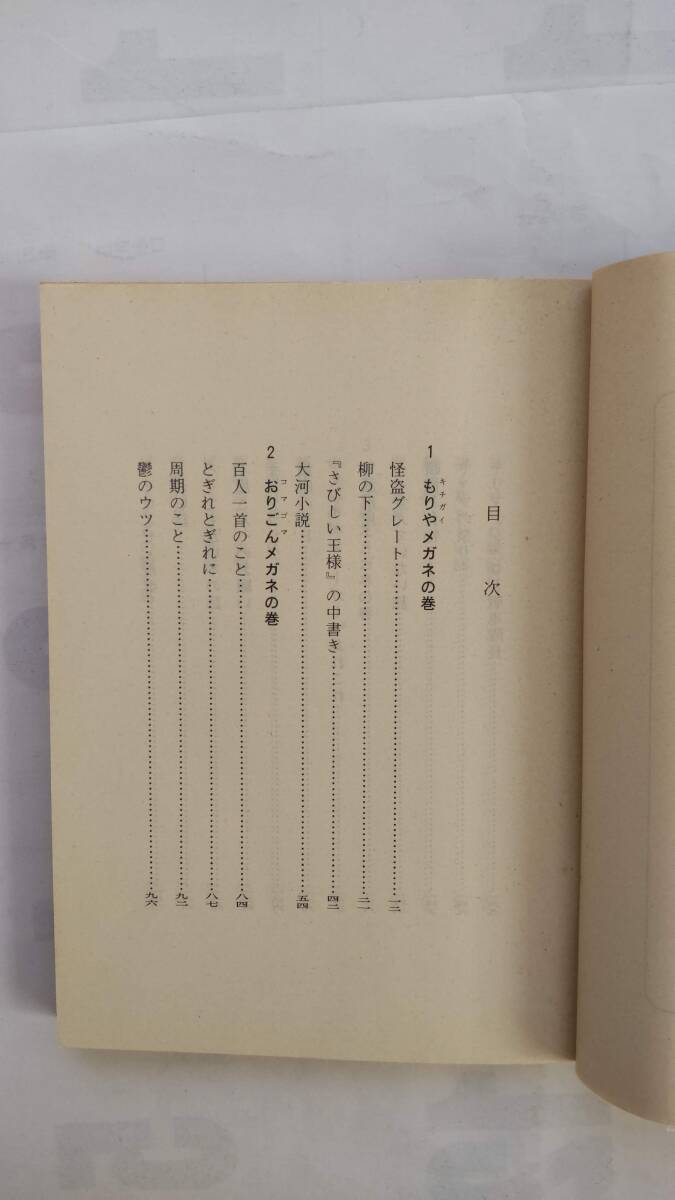 目次
1 もりやメガネの巻
キチガイ
怪盗グレート……一三
柳の下……二一
『さびしい王様』の中書き……四二
大河小説……五四
2 おりごんメガネの巻
コマゴマ
百人一首のこと……八四
とぎれとぎれに……八七
周期のこと……九二
鬱のウツ……九六